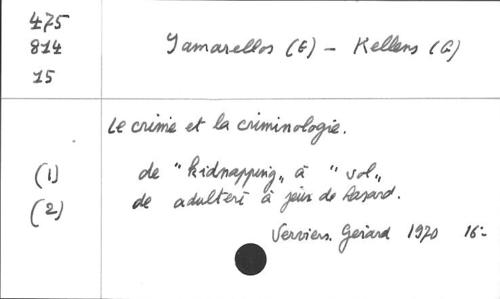 475
814
15
Yamarellos (E) - Kellens (G)
Le crime et la criminologie.
(1) de "kidnapping" à "vol"
(2) de adultère à jeux de hasard.
Verviers. Gérard 1970 16:-